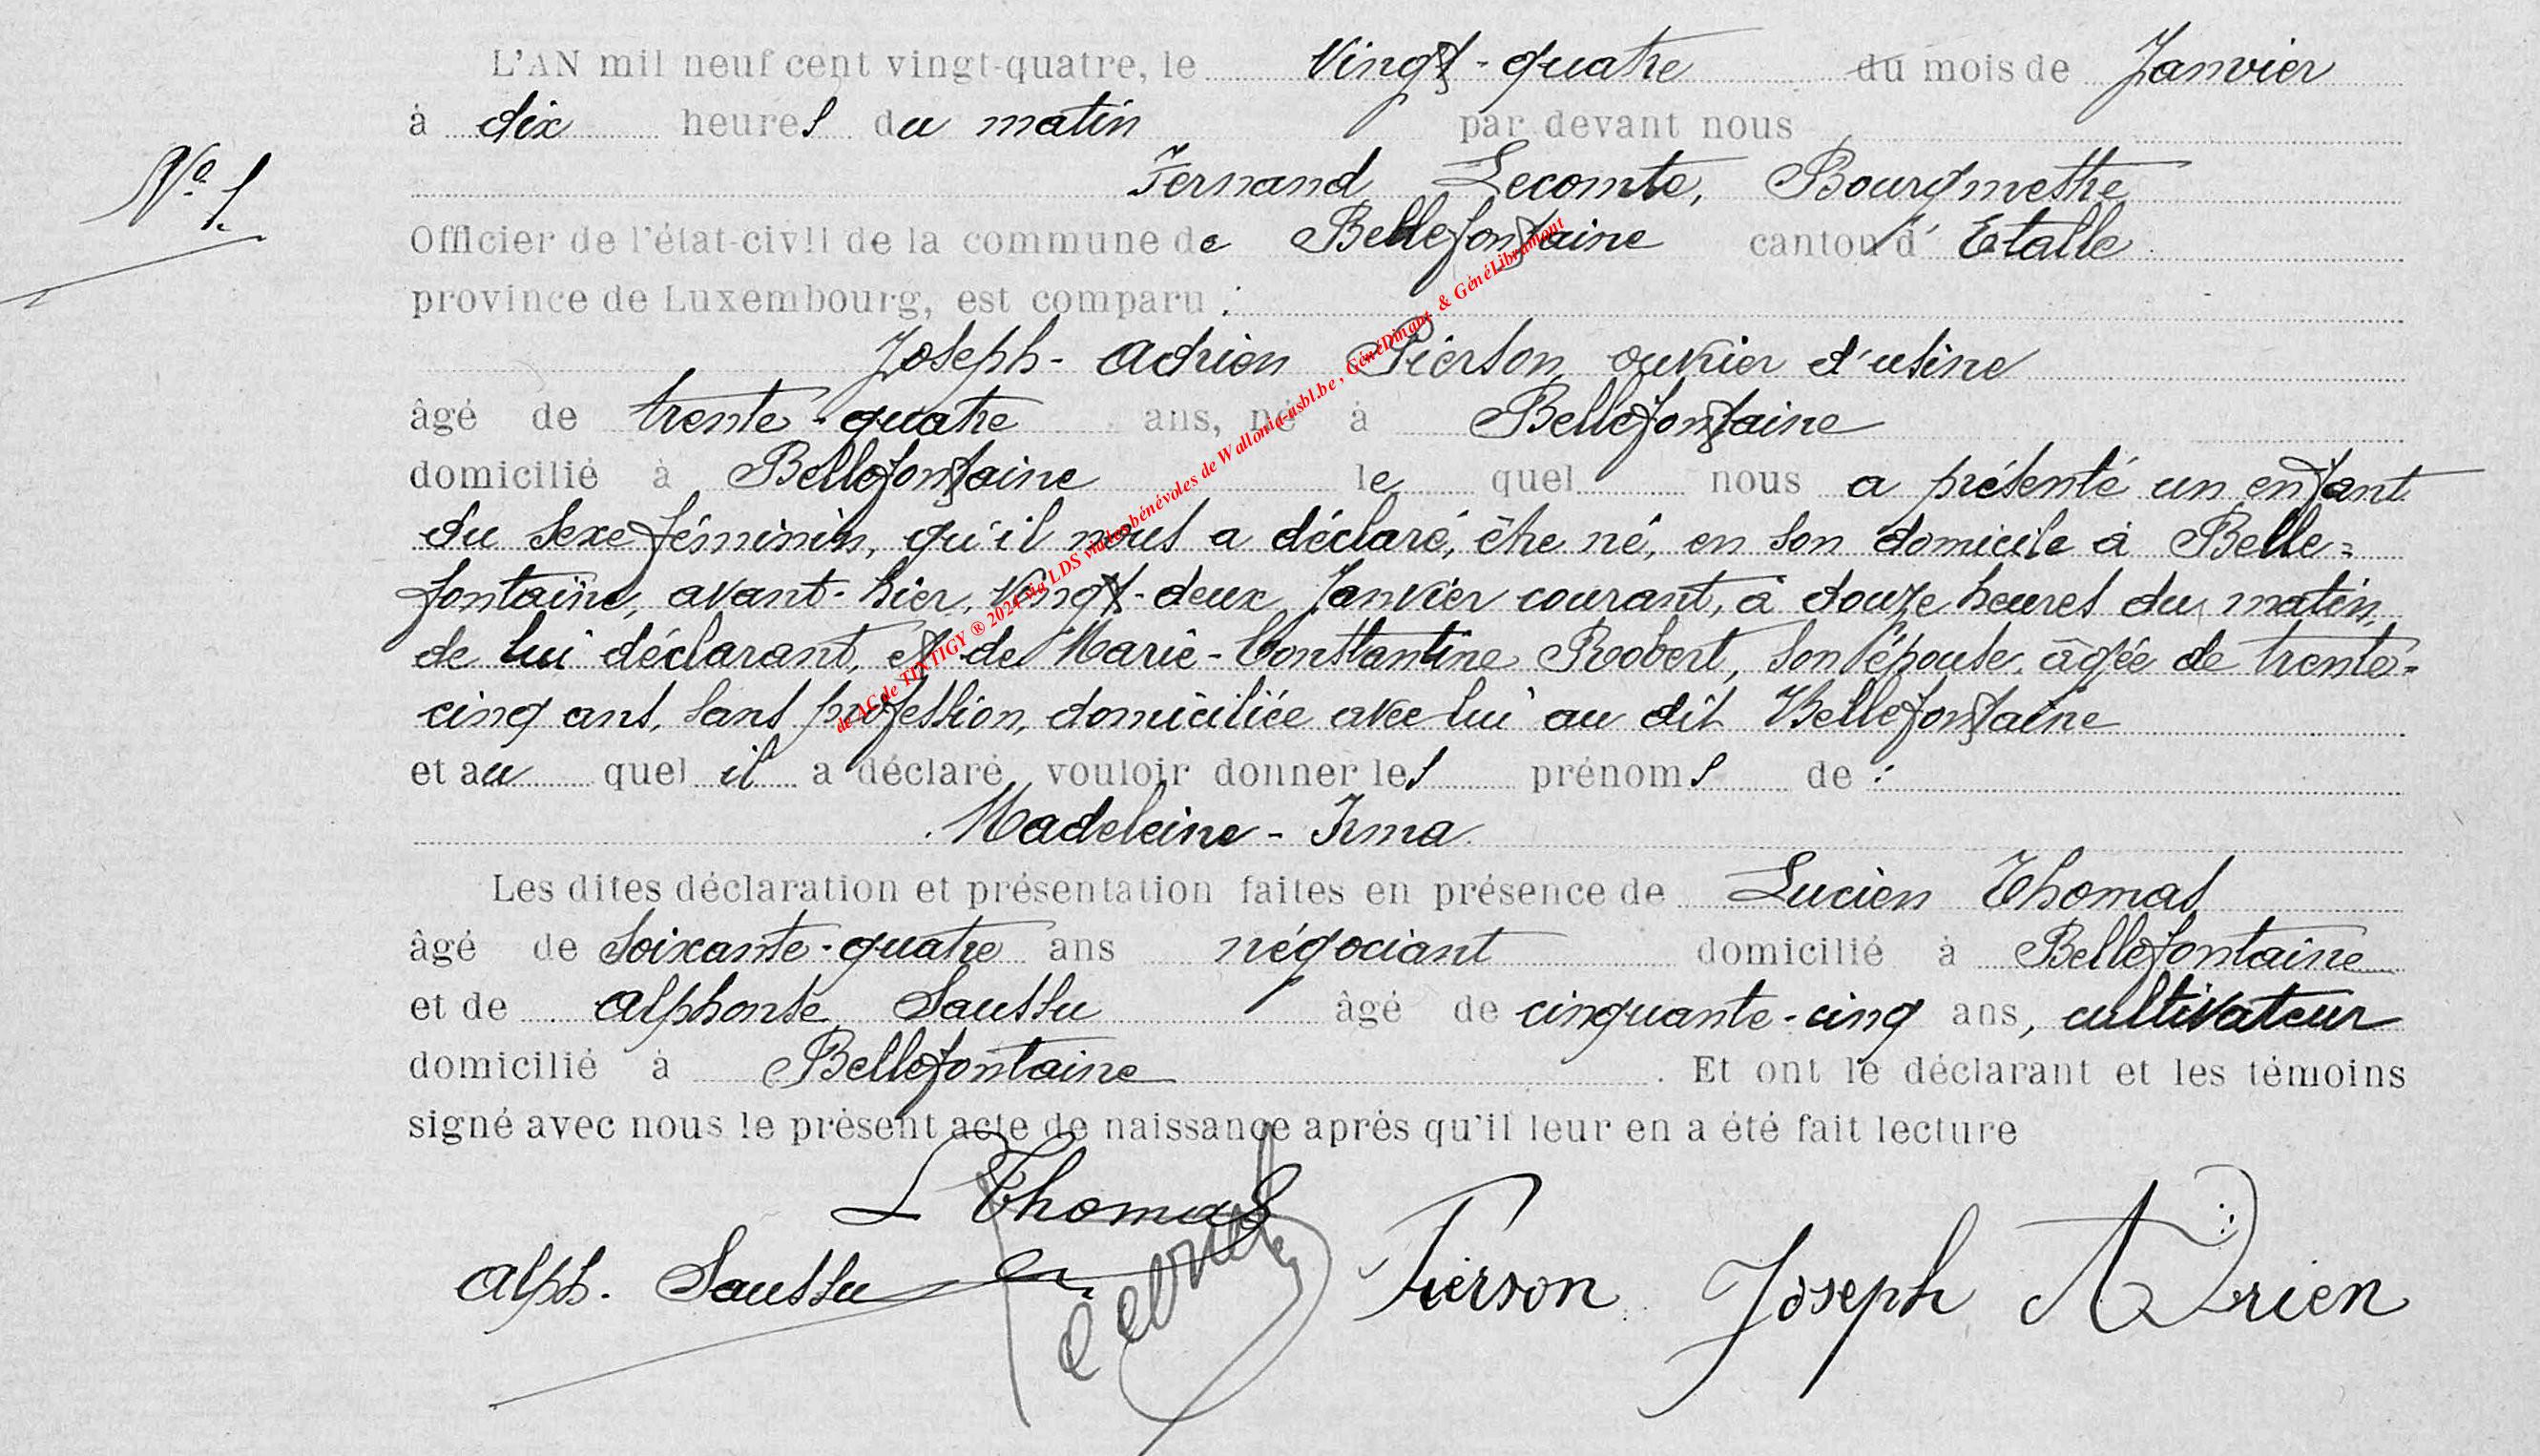 L'AN mil neuf cent vingt-quatre, le Vingt-quatre du mois de Janvier
à dix heures du matin par devant nous
N° 1.
Fernand Lecomte, Bourgmestre
Officier de l'état-civil de la commune de Bellefontaine canton d'Etalle
province de Luxembourg, est comparu :
Joseph-Adrien Pierson, ouvrier d'usine
âgé de trente-quatre ans, né à Bellefontaine
domicilié à Bellefontaine le quel nous a présenté un enfant
du sexe féminin, qu'il nous a déclaré, être né, en son domicile à Belle=
fontaine, avant-hier, Vingt-deux Janvier courant, à douze heures du matin,
de lui déclarant, et de Marie-Constantine Robert, son épouse, âgée de trente-
cinq ans, sans profession, domiciliée avec lui au dit Bellefontaine
et au quel il a déclaré vouloir donner les prénoms de :
Madeleine-Irma.
Les dites déclaration et présentation faites en présence de Lucien Thomas
âgé de soixante-quatre ans négociant domicilié à Bellefontaine
et de Alphonse Saussu âgé de cinquante-cinq ans, cultivateur
domicilié à Bellefontaine. Et ont le déclarant et les témoins
signé avec nous le présent acte de naissance après qu'il leur en a été fait lecture
L Thomas
Alph. Saussu Pierson Joseph ADrien
de AC de TIXTIGY ® 2024 via LDS via les bénévoles de Wallonia-asbl.be, GénéDinant & GénéLibramont